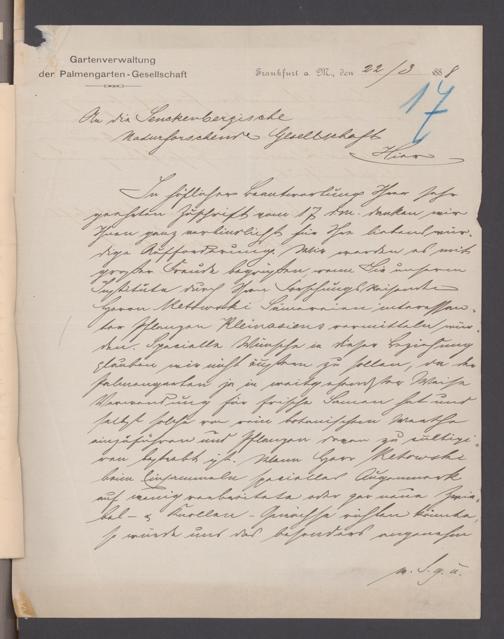 Gartenverwaltung
der Palmengarten-Gesellschaft
Frankfurt a. M., den 22/3 1888
17
An die Senckenbergische
Naturforschende Gesellschaft
Hier
In höflicher Beantwortung Ihrer sehr
geehrten Zuschrift vom 17 dm. danken wir
Ihnen ganz verbindlichst für Ihre liebenswür-
dige Aufforderung. Wir werden es mit
großer Freude begrüßen wenn Sie unserem
Institute durch Ihren Forschungsreisenden
Herrn Retowski Sämereien interessan-
ter Pflanzen Kleinasiens vermitteln wür-
den. Spezielle Wünsche in dieser Beziehung
glauben wir nicht äußern zu sollen, da der
Palmengarten ja in weitgehendster Weise
Verwendung für frische Samen hat und
selbst solche von rein botanischem Werthe
einzuführen und Pflanzen davon zu cultivi-
ren bestrebt ist. Wenn Herr Retowski
beim Einsammeln specielles Augenmerk
auf wenig verbreitete oder gar neue Zwie-
bel- & Knollen-Gewächse richten könnte,
so würde uns das besonders angenehm
w. S. g. u.